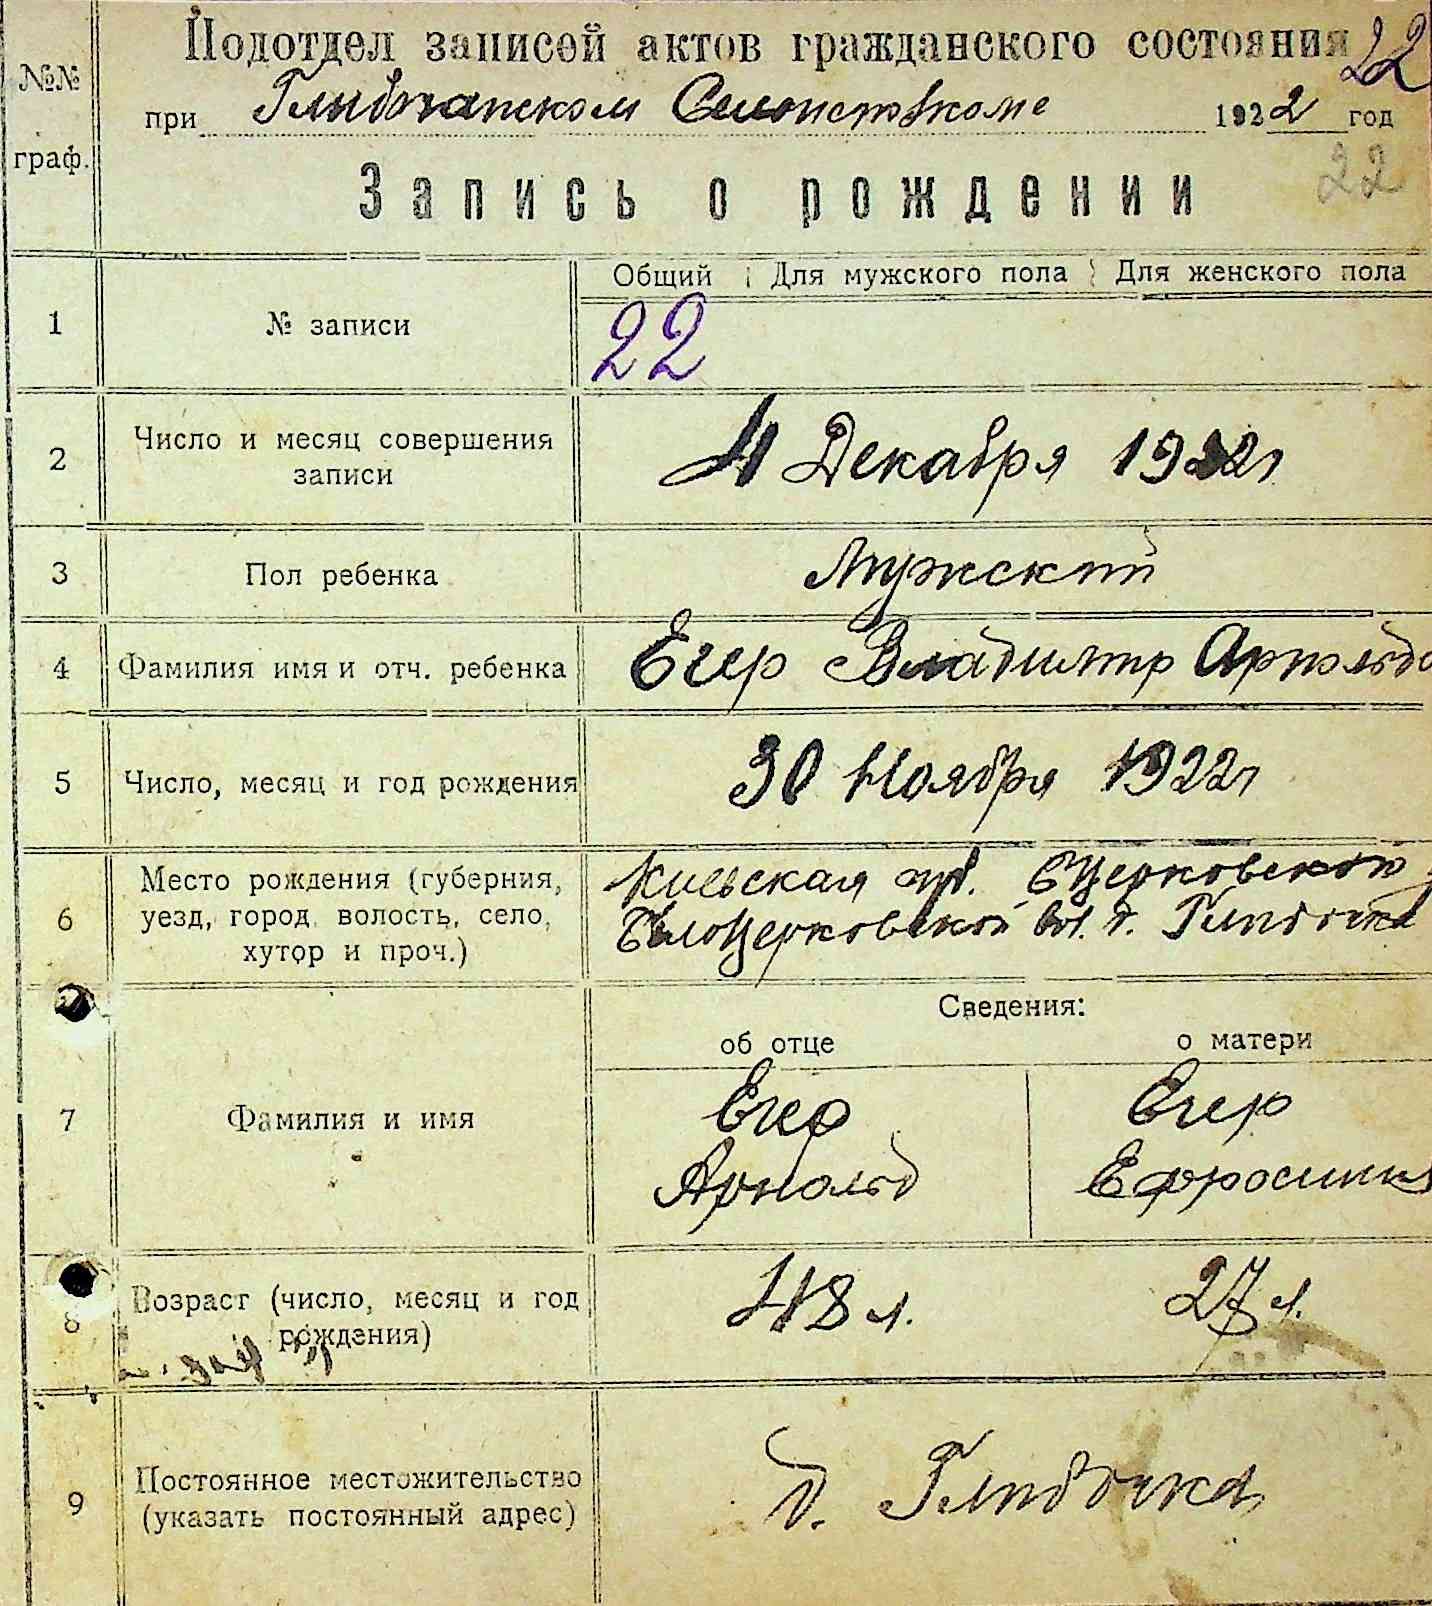 Подотдел записей актов гражданского состояния
22
№№ граф.
при Глыбочанском 1922 год
22
Запись о рождении
Общий Для мужского пола Для женского пола
1 № записи 22
2 Число и месяц совершения записи 4 Декабря 1922г
3 Пол ребенка Мужский
4 Фамилия имя и отч. ребенка Егер Владимир Арнольдо
5 Число, месяц и год рождения 30 Ноября 1922г
6 Место рождения (губерния, уезд, город, волость, село, хутор и проч.)
Киевская губ. БЦерковской
Белоцерковской вол. д. Глыбочка
Сведения:
об отце о матери
7 Фамилия и имя
Егер Егер
Арнольд Ефросиния
8 Возраст (число, месяц и год рождения) 48 л. 27 л.
9 Постоянное местожительство (указать постоянный адрес) д. Глыбочка